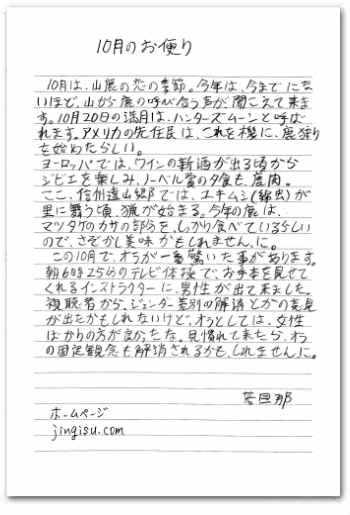 10月のお便り
10月は、山鹿の恋の季節。今年は、今までにな
いほど、山から鹿の呼び合う声が聞こえて来ま
す。10月20日の満月は、ハンターズムーンと呼ば
れます。アメリカの先住民は、これを機に、鹿狩り
を始めたらしい。
ヨーロッパでは、ワインの新酒が出る頃から
ジビエを楽しみ、ノーベル賞の夕食も、鹿肉。
ここ、信州遠山郷では、ユキムシ(綿虫)が
里に舞う頃、猟が始まる。今年の鹿は、
マツタケのカサの部分を、しっかり食べているらしい
ので、さぞかし美味かもしれませんに。
この10月で、オラが一番驚いた事があります。
朝6時25分のテレビ体操で、お手本を見せて
くれるインストラクターに、男性が出て来ました。
視聴者から、ジェンダー差別の解消とかの意見
が出たかもしれないけど、オラとしては、女性
ばかりの方がよかった。見慣れて来たら、オラ
の固定観念も解消されるかも、しれませんに。
若旦那
ホームページ
jingisu.com